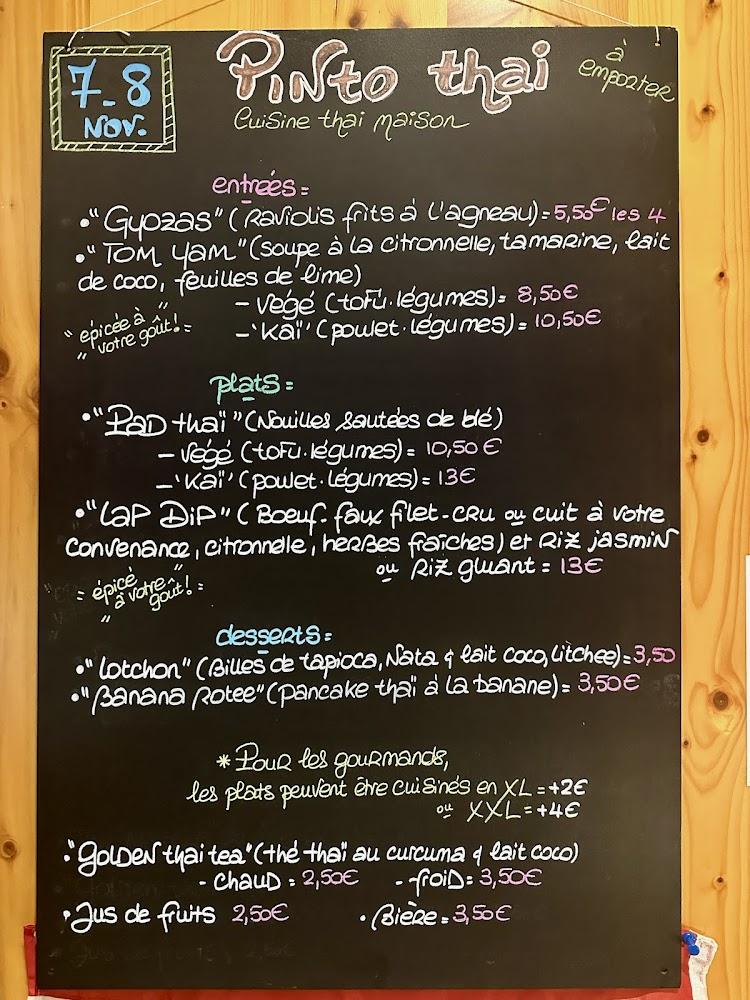 7-8
NOV.
PINto thai
à
emporter
Cuisine thai maison
entrées=
•"Gyozas" (Raviolis frits à l'agneau)=5,50€ les 4
•"TOM YAM" (soupe à la citronnelle, tamarine, lait
de coco, feuilles de lime)
- Végé (tofu.légumes)= 8,50€
-'Kaï' (poulet.légumes)= 10,50€
" épicée à "
" votre goût! =
plats=
•"PAD thaï" (Nouilles sautées de blé)
- Végé (tofu.légumes)= 10,50€
-'Kaï' (poulet.légumes)= 13€
•"LAP DIP" (Boeuf-faux filet-CRU ou cuit à votre
convenance, citronnelle, herbes fraîches) et Riz jasmin
ou Riz gluant = 13€
= épicé "
à votre
" goût! =
desserts=
•"Lotchon" (Billes de tapioca, Nata & lait coco, litchee)=3,50
•"Banana Rotee" (pancake thaï à la banane)= 3,50€
*Pour les gourmands,
les plats peuvent être cuisinés en XL =+2€
ou XXL=+4€
•"Golden thai tea" (thé thaï au curcuma & lait coco)
- chaud = 2,50€ - froid= 3,50€
•Jus de fruits 2,50€ •Bière=3,50€